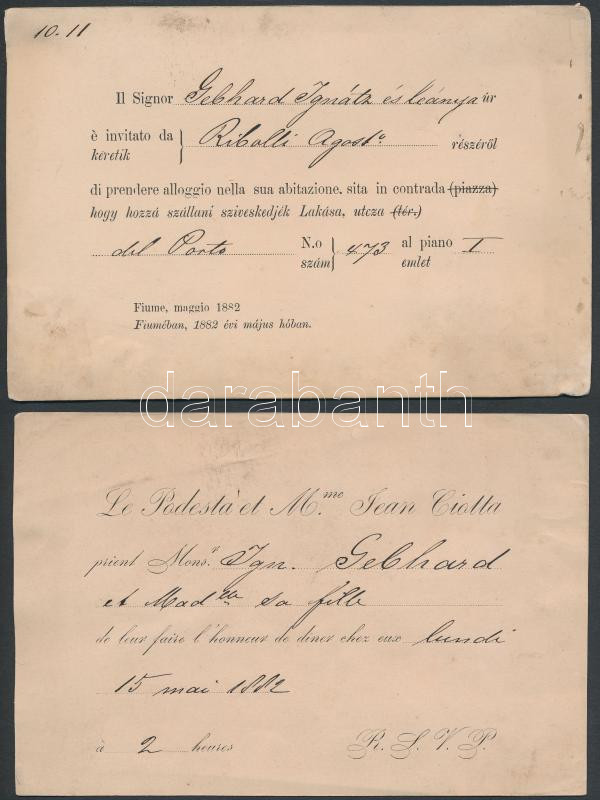 10.11
Il Signor Gebhard Ignátz és leánya úr
è invitato da } Ribolli Agosto. részéről
kéretik
di prendere alloggio nella sua abitazione, sita in contrada (piazza)
hogy hozzá szállani sziveskedjék Lakása, utcza (tér.)
del Porto N.o } 473 al piano I
szám emlet
Fiume, maggio 1882
Fiuméban, 1882 évi május hóban.
darabanth
Le Podestà et M.me Jean Ciotta
prient Mons.r Ign. Gebhard
et Madlle sa fille
de leur faire l'honneur de diner chez eux lundi
15 mai 1882
à 2 heures R. S. V. P.